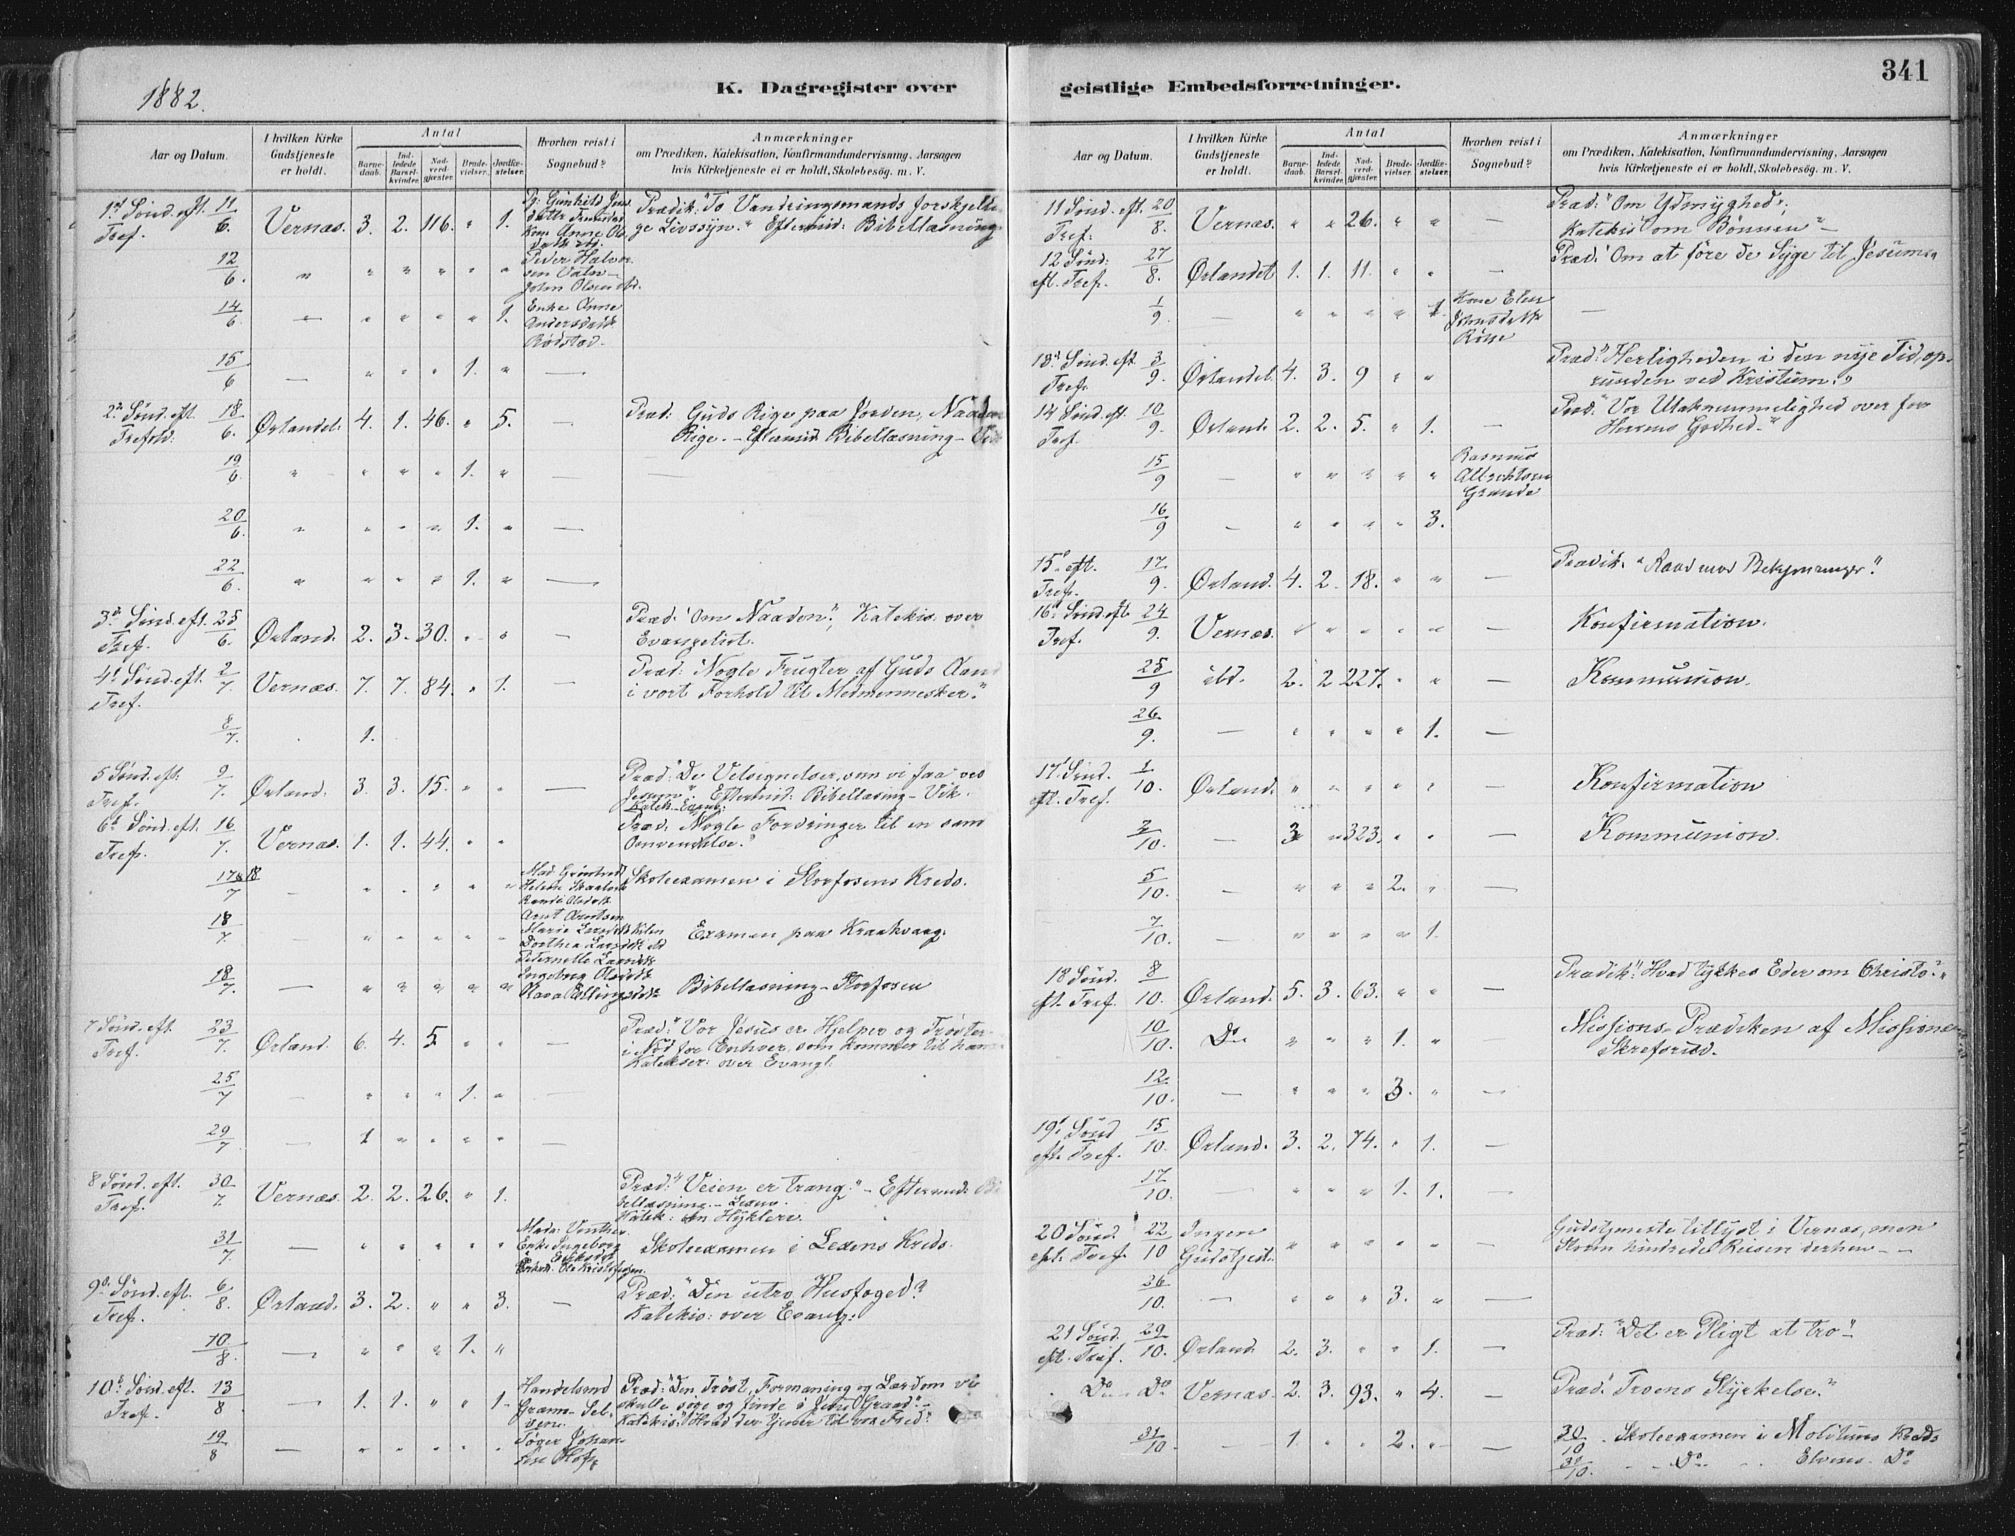 1882.
K. Dagregister over
Aar og Datum. | I hvilken Kirke Gudstjeneste er holdt. | Antal | Barne-daab. | Ind-ledede Barsel-kvinder. | Nad-verd-gjæster. | Brude-vielser. | Jordfæ-stelser. | Hvorhen reist i Sognebud? | Anmærkninger
om Prædiken, Katekisation, Konfirmandundervisning, Aarsagen
hvis Kirketjeneste ei er holdt, Skolebesøg. m. V.
1ste Sønd. eft. Tref. 11/6. Vernæs. 3. 2. 116. " 1. Prædik: "To Vandringsmands forskjelli-
ge Livssyn." Eftermid: Bibellæsning
12/6. " " " " " " Peder Halvor-
sen
John Olsen
14/6. — " " " " 1. Enke Anne
Andersdatt
Rödstad.
15/6 — " " " 1. " —
2d Sønd. eft. Trefold. 18/6. Ørlandet. 4. 1. 46. " 5. — Præd: Guds Rige paa Jorden, Naaden
Rige. - Eftermid Bibellæsning - Vik
19/6 " " " " 1. " — —
20/6. " " " " 1. " —
22/6. " " " " 1. " —
3d Sønd. eft. Tref. 25/6. Ørland. 2. 3. 30. " " — Præd: "Om Naaden"; Katekis. over
Evangeliet.
4d Sønd. eft. Tref. 2/7. Vernæs. 7. 7. 84. " 1. — Præd: "Nogle Frugter af Guds Aand
i vort Forhold til Medmennesker."
8/7. 1.
5 Sønd. eft. Tref. 9/7. Ørland. 3. 3. 15. " " — Præd: "De Velsignelser, som vi faa ved
Jesum". Eftermid: Bibellæsing - Vik.
Katek - Evang:
6d Sønd. eft. Tref. 16/7. Vernæs. 1. 1. 44. " " Præd. "Nogle Fordringer til en sam
Omvendelse."
17&18/7 — " " " " " Skoleexamen i Storfosens Kreds.
Arnt Arntsen
18/7. — " " " " " Examen paa Kraakvaag.
18/7. — " " " " " Ingeborg Olsdtt
Bibellæsning - Storfosen
7 Sønd. eft. Tref. 23/7. Ørland. 6. 4. 5. " " — Præd: "Vor Jesus er Hjelper og Trøster
i Nød for Enhver, som kommer til ham
Katekiser: over Evangl.
25/7 — " " " 1. " —
29/7 — 1 " " " " —
8 Sønd. eft. Tref. 30/7. Vernæs. 2. 2. 26. " 1. Præd: "Veien er trang." - Eftermid: Bi
bellæsning - Lexen.
Katek: Hyklere.
31/7. — " " " " " Enke Ingeborg
Skoleexamen i Lexens Kreds
9d Sønd. eft. Tref. 6/8. Ørland. 3. 2. " " 3. — Præd: "Den utro Husfoged."
Katekis: over Evang:
10/8. — " " " 1. "
10d Sønd. eft. Tref. 13/8 — 1. 1. " " 1. Præd: "Den Trøst, Formaning og Lærdom vi
skulle søge og finde i Jesu Graad" -
Katekis: "Hvad der tjener til vor Fred."
19/8 — " " " " " Töger Johan-
sen Hof
geistlige Embedsforretninger.
341
Aar og Datum. | I hvilken Kirke Gudstjeneste er holdt. | Antal | Barne-daab. | Ind-ledede Barsel-kvinder. | Nad-verd-gjæster. | Brude-vielser. | Jordfæ-stelser. | Hvorhen reist i Sognebud? | Anmærkninger
om Prædiken, Katekisation, Konfirmandundervisning, Aarsagen
hvis Kirketjeneste ei er holdt, Skolebesøg. m. V.
11 Sønd. eft. Tref. 20/8. Vernæs. " " 26. " " — Præd: "Om Ydmyghed";
Katekis "om Bönnen" -
12 Sønd: eft. Tref. 27/8. Ørlandet 1. 1. 11. " " — Præd: "Om at före de Syge til Jesum"
1/9. — " " " " 1. Kone Elen
Johnsdatter —
13d Sønd. eft. Tref. 3/9. Ørlandet. 4. 3. 9 " " Præd: "Herligheden i den nye Tid, op-
runden ved Kristum."
14 Sønd. eft. Tref. 10/9. Ørland. 2. 2. 5. " 1. — Præd: "Vor Utaknemmelighed over for
Herrens Godhed -"
15/9 — " " " " " Rasmus
Albrektsen
Grande
16/9 — " " " " 3.
15d eft. Tref. 17/9. Ørland. 4. 2. 18. " " — Prædik: "Raad mod Bekymringer."
16d Sønd. eft. Tref. 24/9. Vernæs. " " " " " — Konfirmation.
25/9 ibd. 2. 2 227. " " — Kommunion.
26/9. — " " " " 1. —
17d Sønd. eft. Tref. 1/10. Ørland. " " " " " Konfirmation
2/10. — 3 " 323. " " — Kommunion.
5/10. — " " " 2. " —
7/10. — " " " " 1.
18 Sønd. eft. Tref. 8/10. Ørland. 5. 3. 63. " " — Prædik: "Hvad tykkes Eder om Christo?"
10/10. Do " " " 1. " — Missions-Prædiken af Missionær
Skrefsrud.
12/10. — " " " 3. " —
19d Sønd eft. Tref. 15/10. Ørland. 3. 2. 74. " 1. —
17/10. — " " " 1. 1. —
20 Sønd. eft. Tref. 22/10 Ingen
Gudstjest. " " " " " — Gudstjeneste tillyst i Vernæs, men
Storm hindrede Reisen derhen - -
26/10. — " " " 3. " —
21 Sønd. eft. Tref. 29/10. Ørland 2. 3. " " 1. — Præd: "Det er Pligt at tro -"
Do Do Vernæs. 2. 3. 93. " 4. — Præd: "Troens Styrkelse."
31/10. — 1. " " 2. " — 30/10. Skoleexamen i Kreds
31/10. - - Do - - Do